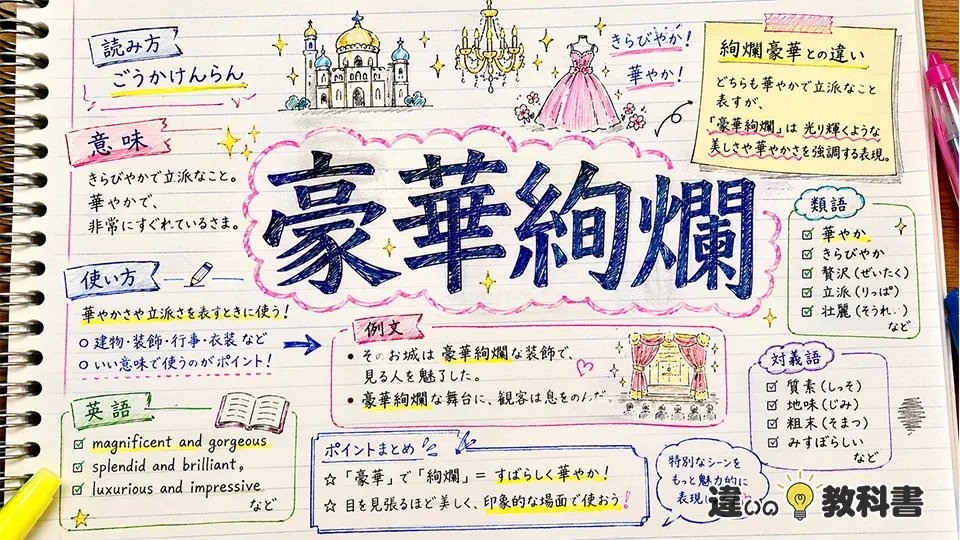 読み方
ごうかけんらん
きらびやか！
華やか！
絢爛豪華との違い
どちらも華やかで立派なこと
表すが、
「豪華絢爛」は光り輝くような
美しさや華やかさを強調する表現。
意味
きらびやかで立派なこと。
華やかで、
非常にすぐれているさま。
豪華絢爛
類語
華やか
きらびやか
贅沢（ぜいたく）
立派（りっぱ）
壮麗（そうれい）
など
使い方
華やかさや立派さを表すときに使う！
建物・装飾・行事・衣装 など
いい意味で使うのがポイント！
例文
そのお城は豪華絢爛な装飾で、
見る人を魅了した。
豪華絢爛な舞台に、観客は息をのんだ。
対義語
質素（しっそ）
地味（じみ）
粗末（そまつ）
みすぼらしい
など
英語
magnificent and gorgeous
splendid and brilliant,
luxurious and impressive
など
ポイントまとめ
☆「豪華」で「絢爛」＝すばらしく華やか！
☆ 目を見張るほど美しく、印象的な場面で使おう！
特別なシーンを
もっと魅力的に
表現
違いの教科書